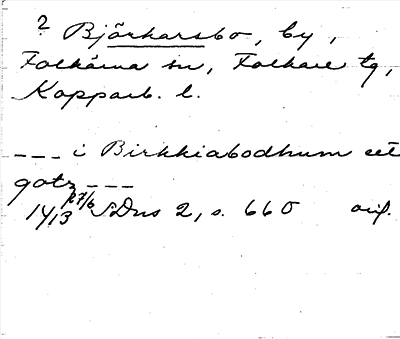 ? Björkarsbo, by,
Folkärna sn, Folkare tg,
Kopparb. l.
--- i Birkkiabodhum ett
gotz ---
1413 27/6 SDns 2, s. 660 orig.